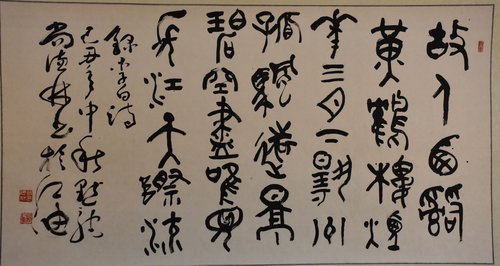 故人西辭
黃鶴樓煙
華三月下揚州
孤颿遠景
碧空盡唯見
長江天際流
錄李白詩
己丑年中秋
書於江油